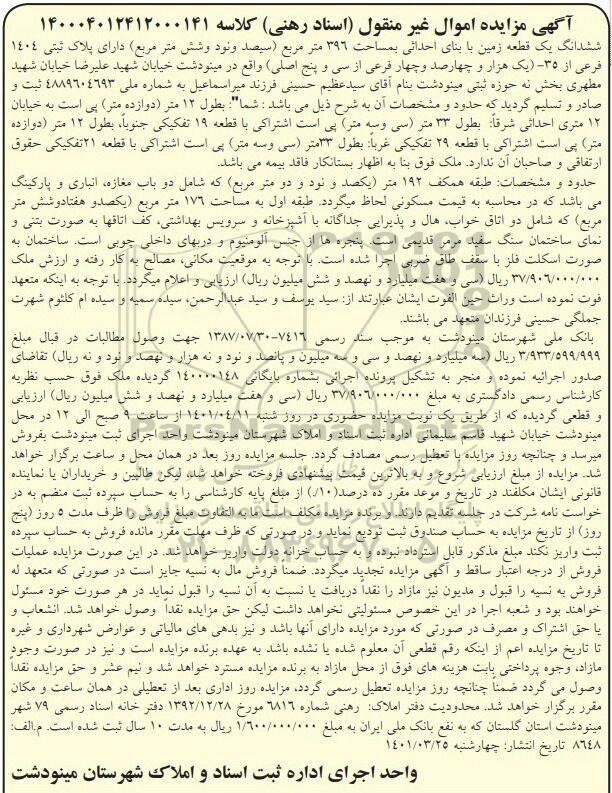 آگهی مزایده اموال غیر منقول (اسناد رهنی) کلاسه ۱۴۰۰۰۴۰۱۲۴۱۲۰۰۰۱۴۱
ششدانگ یک قطعه زمین با بنای احداثی بمساحت ۳۹۶ متر مربع (سیصد ونود وشش متر مربع) دارای پلاک ثبتی ۱۴۰۴
فرعی از ۳۵- (یک هزار و چهارصد وچهار فرعی از سی و پنج اصلی) واقع در مینودشت خیابان شهید علیرضا خیابان شهید
مطهری بخش نه حوزه ثبتی مینودشت بنام آقای سیدعظیم حسینی فرزند میراسماعیل به شماره ملی ۴۸۸۹۶۰۴۶۹۳ ثبت و
صادر و تسلیم گردید که حدود و مشخصات آن به شرح ذیل می باشد : شما": بطول ۱۲ متر (دوازده متر) پی است به خیابان
۱۲ متری احداثی شرقاً: بطول ۳۳ متر (سی وسه متر) پی است اشتراکی با قطعه ۱۹ تفکیکی جنوباً، بطول ۱۲ متر (دوازده
متر) پی است اشتراکی با قطعه ۲۹ تفکیکی غرباً: بطول ۳۳متر (سی وسه متر) پی است اشتراکی با قطعه ۲۱تفکیکی حقوق
ارتفاقی و صاحبان آن ندارد. ملک فوق بنا به اظهار بستانکار فاقد بیمه می باشد.
حدود و مشخصات: طبقه همکف ۱۹۲ متر (یکصد و نود و دو متر مربع) که شامل دو باب مغازه، انباری و پارکینگ
می باشد که در محاسبه به قیمت مسکونی لحاظ میگردد. طبقه اول به مساحت ۱۷۶ متر مربع (یکصدو هفتادوشش متر
مربع) که شامل دو اتاق خواب، هال و پذیرایی جداگانه با آشپزخانه و سرویس بهداشتی، کف اتاقها به صورت بتنی و
نمای ساختمان سنگ سفید مرمر قدیمی است. پنجره ها از جنس آلومنیوم و دربهای داخلی چوبی است. ساختمان به
صورت اسکلت فلز با سقف طاق ضربی اجرا شده است. با توجه به موقعیت مکانی، مصالح به کار رفته و ارزش ملک
۳۷/۹۰۶/۰۰۰/۰۰۰ ریال (سی و هفت میلیارد و نهصد و شش میلیون ریال) ارزیابی و اعلام میگردد. با توجه به اینکه متعهد
فوت نموده است وراث حین الفوت ایشان عبارتند از: سید یوسف و سید عبدالرحمن، سیده سمیه و سیده ام کلثوم شهرت
جملگی حسینی فرزندان متعهد می باشند.
بانک ملی شهرستان مینودشت به موجب سند رسمی ۷۴۱۶-۱۳۸۷/۰۷/۳۰ جهت وصول مطالبات در قبال مبلغ
۳/۹۳۳/۵۹۹/۹۹۹ ریال (سه میلیارد و نهصد و سی و سه میلیون و پانصد و نود و نه هزار و نهصد و نود و نه ریال) تقاضای
صدور اجرائیه نموده و منجر به تشکیل پرونده اجرائی بشماره بایگانی ۱۴۰۰۰۰۱۴۸ گردیده ملک فوق حسب نظریه
کارشناس رسمی دادگستری به مبلغ ۳۷/۹۰۶/۰۰۰/۰۰۰ ریال (سی و هفت میلیارد و نهصد و شش میلیون ریال) ارزیابی
و قطعی گردیده که از طریق یک نوبت مزایده حضوری در روز شنبه ۱۴۰۱/۰۴/۱۱ از ساعت ۹ صبح الی ۱۲ در محل
مینودشت خیابان شهید قاسم سلیمانی اداره ثبت اسناد و املاک شهرستان مینودشت واحد اجرای ثبت مینودشت بفروش
میرسد و چنانچه روز مزایده با تعطیل رسمی مصادف گردد. جلسه مزایده روز بعد در همان محل و ساعت برگزار خواهد
شد. مزایده از مبلغ ارزیابی شروع و به بالاترین قیمت پیشنهادی فروخته خواهد شد، لیکن طالبین و خریداران یا نماینده
قانونی ایشان مکلفند در تاریخ و موعد مقرر ده درصد(۱۰٪) از مبلغ پایه کارشناسی را به حساب سپرده ثبت منضم به در
خواست نامه شرکت در جلسه تقدیم دارند. و برنده مزایده مکلف است مابه التفاوت مبلغ فروش را ظرف مدت ۵ روز (پنج
روز) از تاریخ مزایده به حساب صندوق ثبت تودیع نماید و در صورتی که ظرف مهلت مقرر مانده فروش به حساب سپرده
ثبت واریز نکند مبلغ مذکور قابل استرداد نبوده و به حساب خزانه دولت واریز خواهد شد. در این صورت مزایده عملیات
فروش از درجه اعتبار ساقط و آگهی مزایده تجدید میگردد. ضمناً فروش مال به نسیه جایز است در صورتی که متعهد له
فروش به نسیه را قبول و مدیون نیز مازاد را نقداً دریافت یا نسبت به آن نسیه را قبول نماید در هر صورت خود مسئول
خواهند بود و شعبه اجرا در این خصوص مسئولیتی نخواهد داشت لیکن حق مزایده نقداً وصول خواهد شد. انشعاب و
یا حق اشتراک و مصرف در صورتی که مورد مزایده دارای آنها باشد و نیز بدهی های مالیاتی و عوارض شهرداری و غیره
تا تاریخ مزایده اعم از اینکه رقم قطعی آن معلوم شده یا نشده باشد به عهده برنده مزایده است و نیز در صورت وجود
مازاد، وجوه پرداختی بابت هزینه های فوق از محل مازاد به برنده مزایده مسترد خواهد شد و نیم عشر و حق مزایده نقداً
وصول می گردد ضمناً چنانچه روز مزایده تعطیل رسمی گردد، مزایده روز اداری بعد از تعطیلی در همان ساعت و مکان
مقرر برگزار خواهد شد. محدودیت دفتر املاک: رهنی شماره ۶۸۱۶ مورخ ۱۳۹۲/۱۲/۲۸ دفتر خانه اسناد رسمی ۷۹ شهر
مینودشت استان گلستان که به نفع بانک ملی ایران به مبلغ ۱/۶۰۰/۰۰۰/۰۰۰ ریال به مدت ۱۰ سال ثبت شده است. م.الف:
۸۶۴۸ تاریخ انتشار: چهارشنبه ۱۴۰۱/۰۳/۲۵
واحد اجرای اداره ثبت اسناد و املاک شهرستان مینودشت